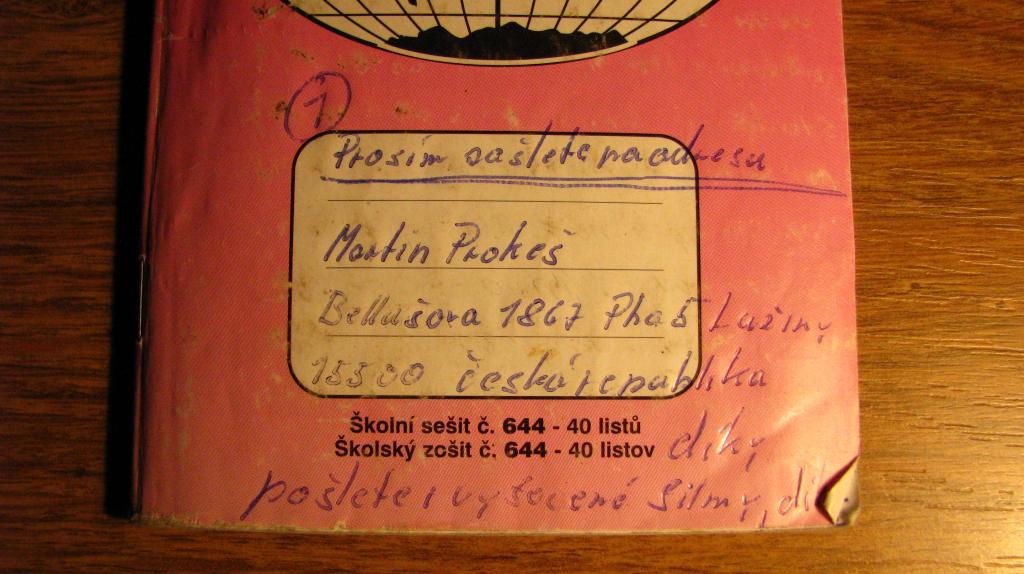 1
Prosím zašlete na adresu
Martin Prokeš
Bellušova 1867 Pha5 Lužiny
15500 česká republika
Školní sešit č. 644 - 40 listů
Školský zošit č. 644 - 40 listov
díky
pošlete i vyfocené filmy, dí